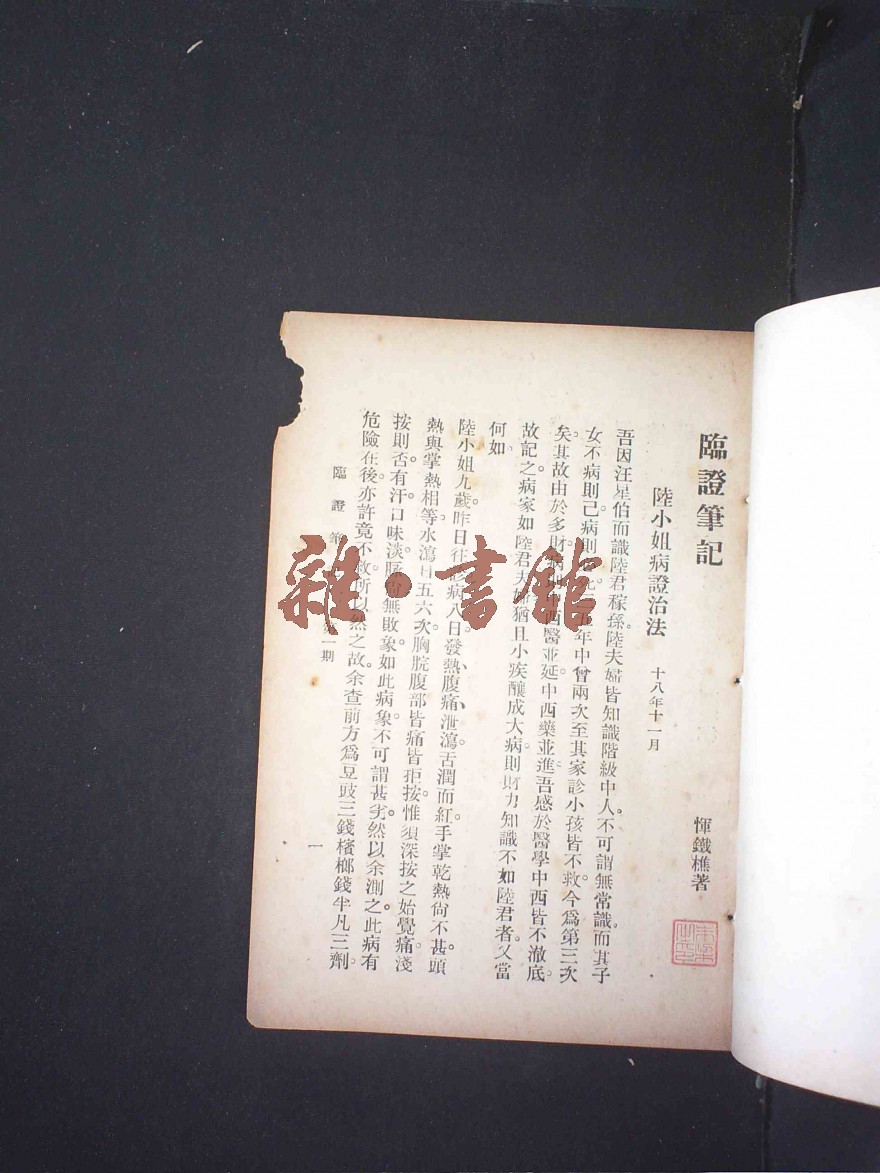 臨證筆記
惲鐵樵著
陸小姐病證治法 十八年十一月
吾因汪星伯而識陸君稼孫。陸夫婦皆知識階級中人。不可謂無常識。而其子
女不病則已。病則五年中曾兩次至其家診小孩皆不救。今爲第三次
矣。其故由於多財。病則中西醫並延。中西藥並進。吾感於醫學中西皆不澈底。
故記之。病家如陸君夫婦猶且小疾釀成大病。則財力知識不如陸君者。又當
何如、
陸小姐九歲。昨日往診。病八日。發熱、腹痛、泄瀉、舌潤而紅。手掌乾熱尙不甚。頭
熱與掌熱相等。水瀉日五六次。胸脘腹部皆痛。皆拒按。惟須深按之始覺痛。淺
按則否。有汗。口味淡。無敗象。如此病象。不可謂甚劣。然以余測之。此病有
危險在後。亦許竟不救。所以然之故。余查前方爲豆豉三錢檳榔錢半。凡三劑。
臨證筆 一期
一
雜·書館